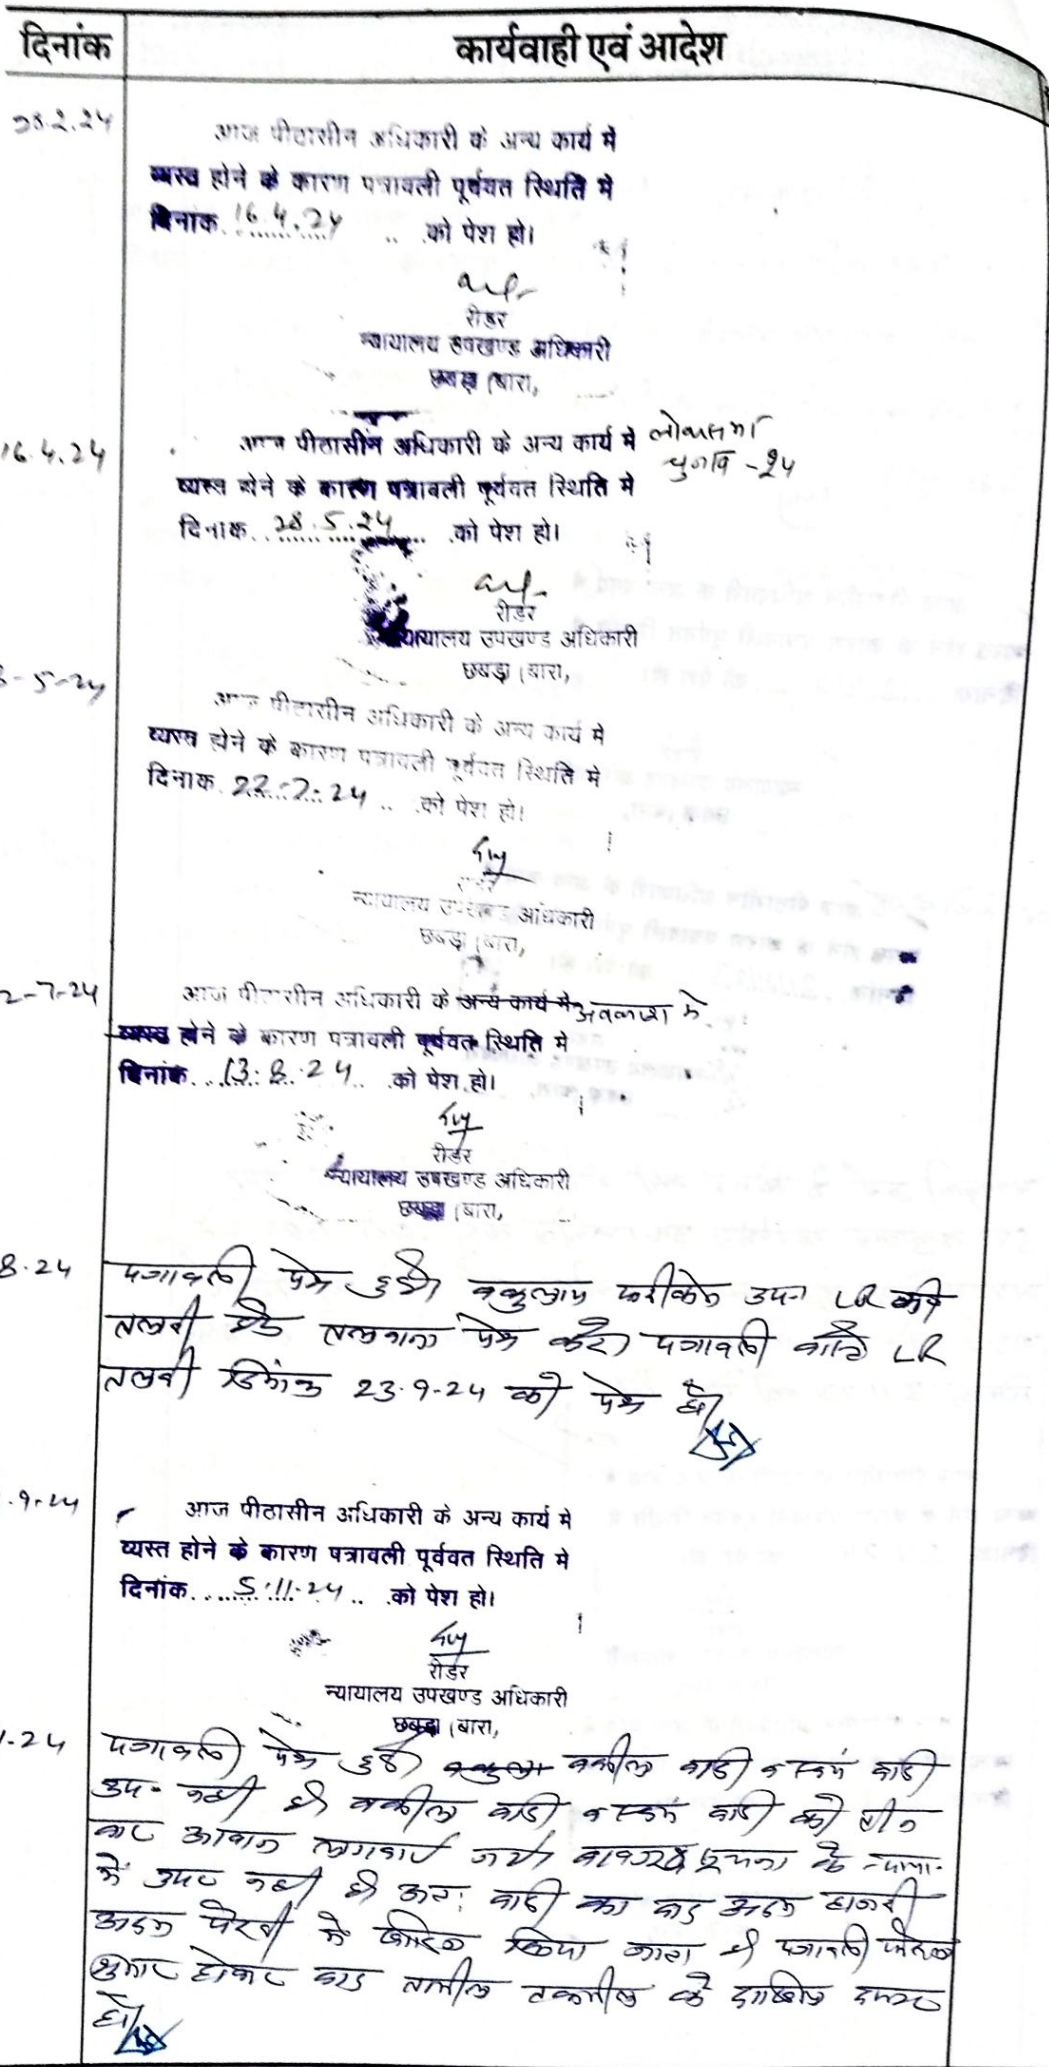 दिनांक
कार्यवाही एवं आदेश
28.2.24
आज पीठासीन अधिकारी के अन्य कार्य में
व्यस्त होने के कारण पत्रावली पूर्ववत स्थिति में
दिनांक 16.4.24 को पेश हो।
रीडर
न्यायालय उपखण्ड अधिकारी
छबड़ा (बारा,
16.4.24
आज पीठासीन अधिकारी के अन्य कार्य में लोकसभा
चुनाव - 24
व्यस्त होने के कारण पत्रावली पूर्ववत स्थिति में
दिनांक 28.5.24 को पेश हो।
रीडर
न्यायालय उपखण्ड अधिकारी
छबड़ा (बारा,
8-5-24
आज पीठासीन अधिकारी के अन्य कार्य में
व्यस्त होने के कारण पत्रावली पूर्ववत स्थिति मे
दिनांक 22-7-24 को पेश हो।
रीडर
न्यायालय उपखण्ड अधिकारी
छबड़ा (बारा,
2-7-24
आज पीठासीन अधिकारी के अन्य कार्य मे अवकाश मे
व्यस्त होने के कारण पत्रावली पूर्ववत स्थिति मे
दिनांक 13.8.24 को पेश हो।
रीडर
न्यायालय उपखण्ड अधिकारी
छबड़ा (बारा,
8.24
पत्रावली पेश हुई। वकुलाय फरीकेन उप० LR की
तलबी हेतु तलवाना पेश करे। पत्रावली वास्ते LR
तलबी दिनांक 23.9-24 को पेश हो।
.9-24
आज पीठासीन अधिकारी के अन्य कार्य मे
व्यस्त होने के कारण पत्रावली पूर्ववत स्थिति मे
दिनांक 5.11.24 को पेश हो।
रीडर
न्यायालय उपखण्ड अधिकारी
छबड़ा (बारा,
1.24
पत्रावली पेश हुई। वकील वादी व स्वयं वादी
उप० नही है। वकील वादी व स्वयं वादी को तीन
बार आवाज लगवाई गयी बावजूद सूचना के न्याया०
मे उप० नही है। अतः वादी का वाद अदम हाजरी
अदम पैरवी मे खारिज किया जाता है। पत्रावली फैसल
शुमार होकर बाद तामील तकमील के दाखिल दफ्तर
हो।